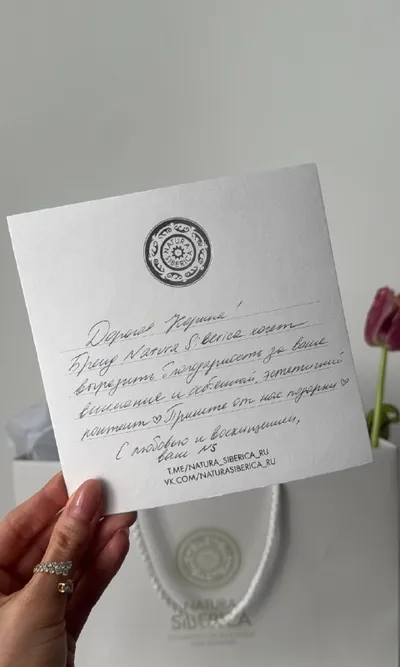 NATURA
SIBERICA
Дорогая Карина!
Бренд Natura Siberica хочет
выразить благодарность за ваше
внимание и особенный, эстетичный
контент ♡ Примите от нас подарки ♡
С любовью и восхищением,
ваш NS
T.ME/NATURA_SIBERICA_RU
VK.COM/NATURASIBERICA_RU
NATURA
SIBERICA